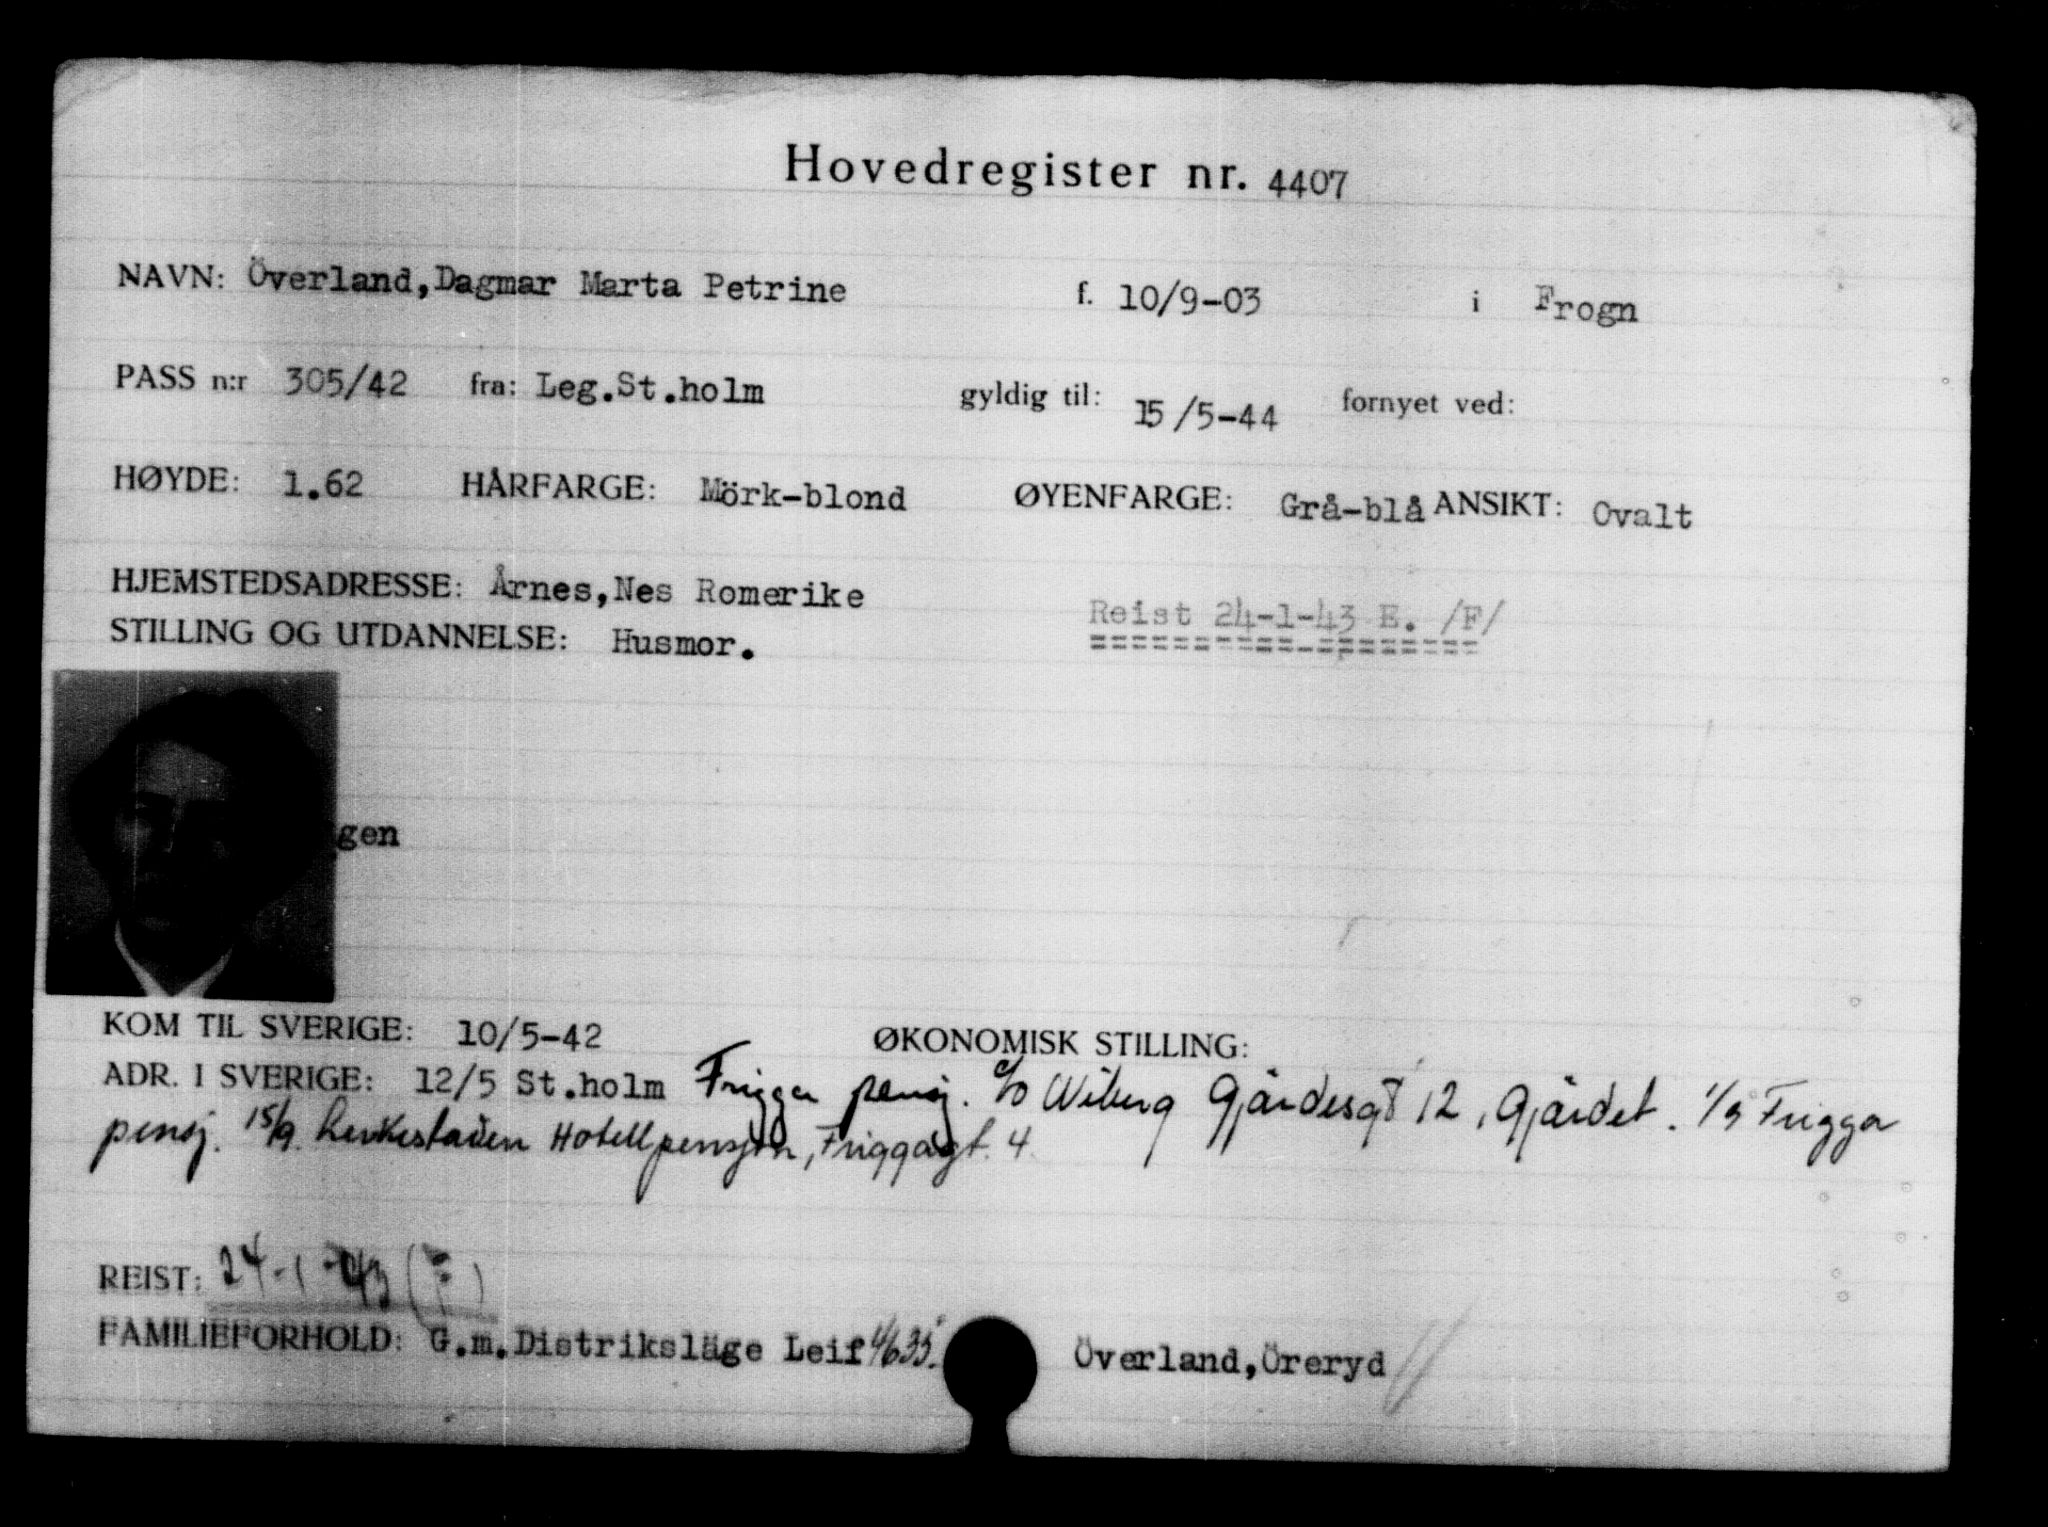 Hovedregister nr. 4407
NAVN: Överland,Dagmar Marta Petrine f. 10/9-03 i Frogn
PASS n:r 305/42 fra: Leg.St.holm gyldig til: 15/5-44 fornyet ved:
HØYDE: 1.62 HÅRFARGE: Mörk-blond ØYENFARGE: Grå-blå ANSIKT: Ovalt
HJEMSTEDSADRESSE: Årnes,Nes Romerike
Reist 24-1-43 E. /F/
STILLING OG UTDANNELSE: Husmor.
gen
KOM TIL SVERIGE: 10/5-42 ØKONOMISK STILLING:
ADR. I SVERIGE: 12/5 St.holm Frigga pensj. c/o Wiberg Gjärdesgt 12, Gjärdet. 1/9 Frigga
pensj. 15/9. Hotellpensjon, Friggagt. 4.
REIST: 24-1-43 (F)
FAMILIEFORHOLD: G.m.Distriksläge Leif 4635. Överland,Öreryd